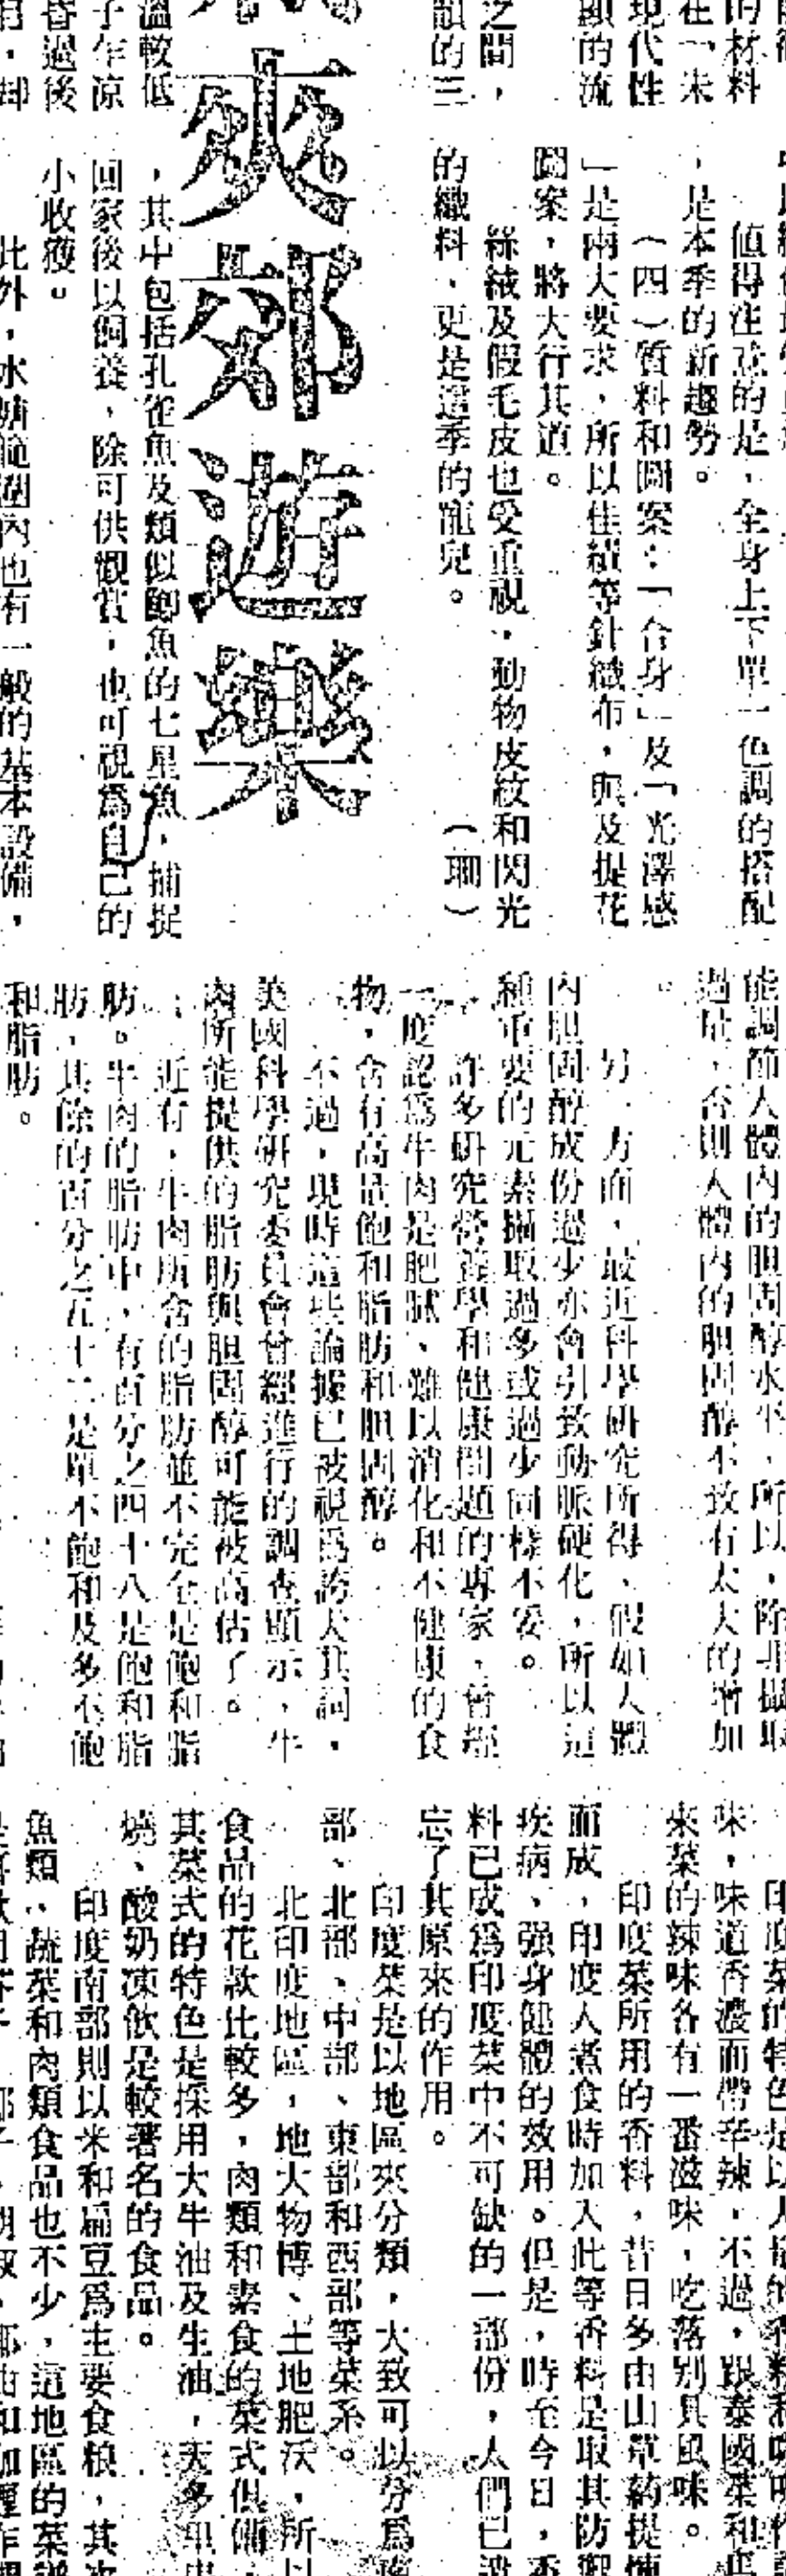 的材料
在一未
現代性
顯的流
之間，
韻的三
值得注意的是，全身上下單一色調的搭配
，是本季的新趨勢。
（四）質料和圖案：「合身」及「光澤感
」是兩大要求，所以佳績等針織布，與及提花
圖案，將大行其道。
絲絨及假毛皮也受重視，動物皮紋和閃光
的織料，更是這季的寵兒。
（珊）
夾郊遊樂
溫較低
子乍涼
昏過後
，其中包括孔雀魚及類似鯽魚的七星魚，捕捉
回家後以飼養，除可供觀賞，也可視為自己的
小收獲。
此外，水塘範圍內也有一般的基本設備，
能調節人體內的胆固醇水平，所以，除非攝取
過量，否則人體內的胆固醇不致有太大的增加
。
另一方面，最近科學研究所得，假如人體
內胆固醇成份過少亦會引致動脈硬化，所以這
種重要的元素攝取過多或過少同樣不妥。
許多研究營養學和健康問題的專家，曾經
一度認為牛肉是肥膩、難以消化和不健康的食
物，含有高量飽和脂肪和胆固醇。
不過，現時這些論據已被視為誇大其詞，
美國科學研究委員會曾經進行的調查顯示，牛
肉所能提供的脂肪與胆固醇可能被高估了。
近有，牛肉所含的脂肪並不完全是飽和脂
肪。牛肉的脂肪中，有百分之四十八是飽和脂
肪，其餘的百分之五十二是單不飽和及多不飽
和脂肪。
印度菜的特色是以大量的香料和咖喱作
味，味道香濃而帶辛辣，不過，跟泰國菜和
來菜的辣味各有一番滋味，吃落別具風味。
印度菜所用的香料，昔日多由山草葯提煉
而成，印度人煮食時加入此等香料是取其防禦
疾病、强身健體的效用。但是，時至今日，香
料已成為印度菜中不可缺的一部份，人們已
忘了其原來的作用。
印度菜是以地區來分類，大致可以分為南
部、北部、中部、東部和西部等菜系。
北印度地區，地大物博、土地肥沃，所以
食品的花款比較多，肉類和素食的菜式俱備，
其菜式的特色是採用大牛油及生油，大多
燒、酸奶凍飲是較著名的食品。
印度南部則以米和扁豆為主要食粮，其次
魚類、蔬菜和肉類食品也不少，這地區的菜